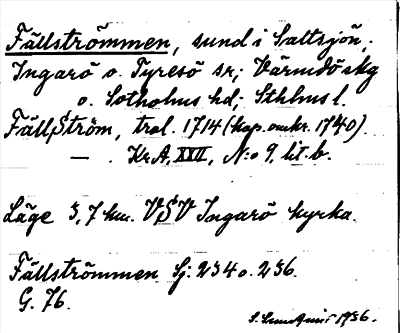 Fällströmmen, sund i Saltsjön,
Ingarö o. Tyresö sn; Värmdö skg
o. Sotholms hd; Sthlms l.
FällStröm, trol. 1714 (kop. omkr. 1740).
— . Kr.A. XXII, N:o 9. lit. b.
Läge 3,7 km. VSV Ingarö kyrka.
Fällströmmen Sj: 234 o. 236.
G. 76.
1936.